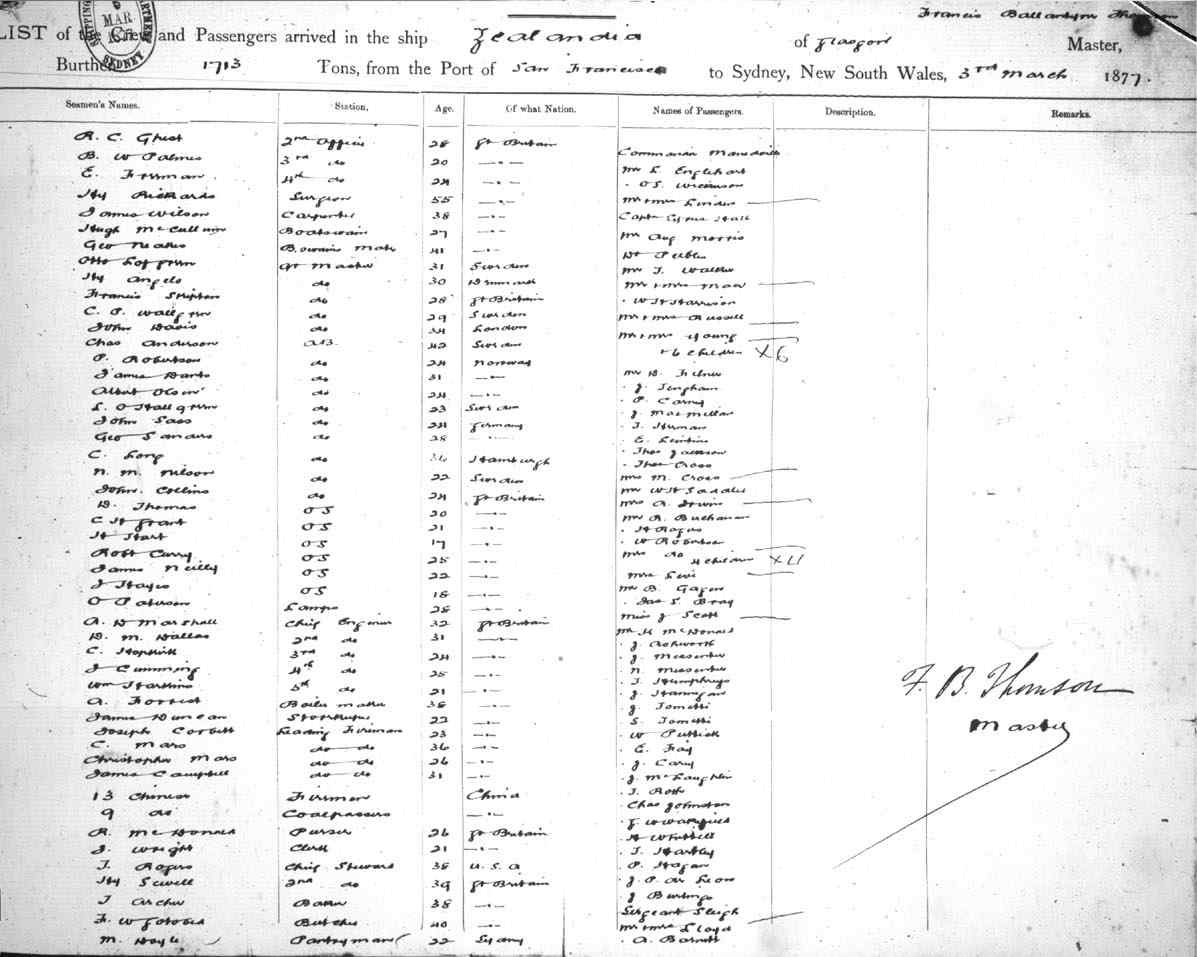 Francis Ballantyne Thomson
SHIPPING DEPARTMENT MAR SYDNEY
LIST of the Crew and Passengers arrived in the ship Zealandia of Glasgow Master,
Burthen 1713 Tons, from the Port of San Francisco to Sydney, New South Wales, 3rd March 1877.
Seamen's Names. Station, Age. Of what Nation. Names of Passengers. Description. Remarks.
R. C. Ghest 2nd Officer 28 Gt Britain Commander
B. W Palmer 3rd do 20 —"— Mr L Englehart
E. Freeman 4th do 24 —"— " OS Wilkinson
Hy Rickards Surgeon 55 —"— Mr & Mrs
James Wilson Carpenter 38 —"— Captn Cyrus Hall
Hugh McCullum Boatswain 27 —"— Mr Aug Morris
Geo Boswains Mate 41 —"— Dr Peebles
Otto Qr Master 31 Sweden Mr J. Walker
Hy Angelo do 30 Denmark Mr & Mrs
Francis Stephen do 28 Gt Britain " W H Harrison
C. P. do 29 Sweden Mr & Mrs Russell
John Davis do 34 London Mr & Mrs Young
Chas Anderson A.B. 42 Sweden + 6 children X6
P. Robertson do 24 Norway Mr D.
James do 31 —"— " J.
Albert Olsen do 24 —"— " P. Carney
L. O do 23 Sweden " J Macmillan
John Sass do 24 Germany " J.
Geo Sanders do 28 —"— " E.
C. Long do 36 Hamburgh " Thos Jackson
" Thos Cross
N. M. Nilson do 22 Sweden Mrs M. Cross
John. Collins do 24 Gt Britain Mr W H Saddler
D. Thomas OS 20 —"— Mrs A. Irwin
C H Grant OS 21 —"— Mr R. Buchanan
H Hart OS 17 —"— " H
Robt Curry OS 25 —"— " W Robinson
James Neilly OS 22 —"— Mrs do 4 children X4
J Hayes OS 18 —"— Mrs Levi
O Paterson Lamps 28 —"— Mr B. Gagen
" Jas S. Bray
A. D Marshall Chief Engineer 32 Gt Britain Miss J Scott
D. M. Dallas 2nd do 31 —"— Mr H McDonald
C. Hopkirk 3rd do 24 —"— " J. Ashworth
J Cumming 4th do 25 —"— " J. Messenter
Wm Harkins 5th do 21 —"— " N. Messenter
A. Forrest Boiler maker 38 —"— " J. Humphreys
James Duncan Storekeeper 22 —"— " J Hannigan
Joseph Corbett Leading Fireman 23 —"— " J. Tometti
C. Mars do do 36 —"— " S. Tometti
Christopher Mars do do 26 —"— " W
James Campbell do do 31 —"— " E. Fay
" J. Carey
" J. McLaughlin
13 Chinese Firemen China " J. Roth
9 do Coalpassers —"— Chas Johnston
R. McDonald Purser 26 Gt Britain " J W Wakefield
J. Wright Clerk 21 —"— " H W
J. Rogers Chief Steward 38 U.S.A " J. Hartley
Hy Sewell 2nd do 39 Gt Britain " P. Hagan
J Archer Baker 38 —"— " J. P. de Leon
F. W Butcher 40 —"— " J
M. Hoyle Pantryman 22 Sydney Sergeant Sleigh
Mr & Mrs Lloyd
" A. Barnett
F. B. Thomson
Master